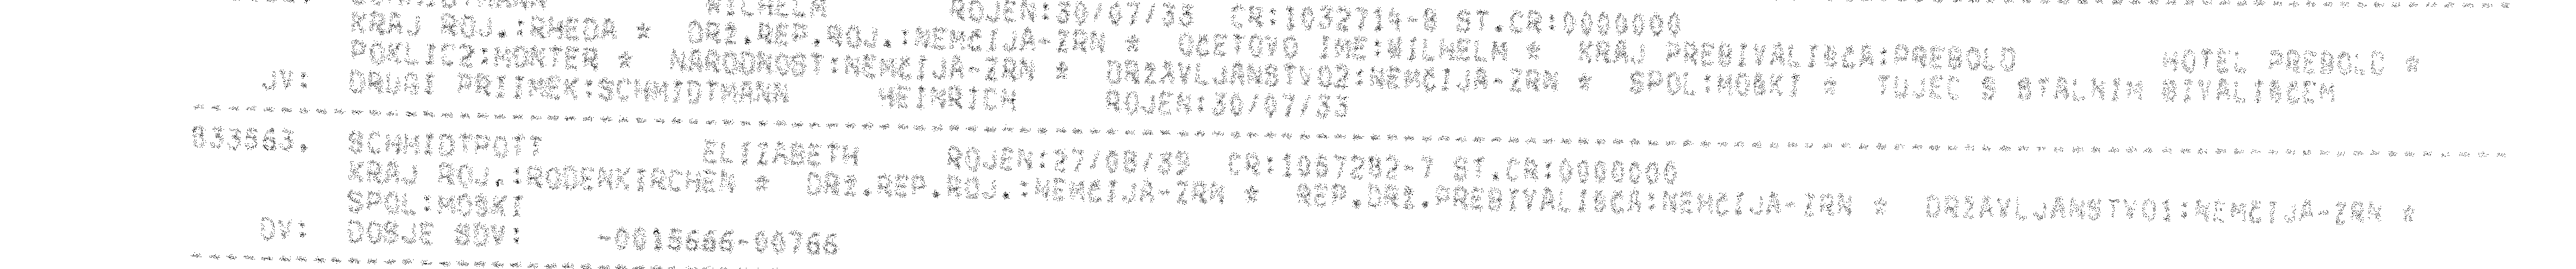 SCHMIDTMANN WILHELM ROJEN:30/07/33 CR:1032714-8 ST.CR:0000000
KRAJ ROJ.:RHEDA * DRŽ.REP.ROJ.:NEMČIJA-ZRN * OČETOVO IME:WILHELM * KRAJ PREBIVALIŠČA:PREBOLD HOTEL PREBOLD *
POKLIC2:MONTER * NARODNOST:NEMČIJA-ZRN * DRŽAVLJANSTVO2:NEMČIJA-ZRN * SPOL:MOŠKI * TUJEC S STALNIM BIVALIŠČEM
JV: DRUGI PRIIMEK:SCHMIDTMANN HEINRICH ROJEN:30/07/33
033563. SCHMIDTPOTT ELIZABETH ROJEN:27/08/39 CR:1067282-7 ST.CR:0000000
KRAJ ROJ.:RODENKIRCHEN * DRŽ.REP.ROJ.:NEMČIJA-ZRN * REP.DRŽ.PREBIVALIŠČA:NEMČIJA-ZRN * DRŽAVLJANSTVO1:NEMČIJA-ZRN *
SPOL:MOŠKI
DV: DOSJE SDV: -0015666-00766